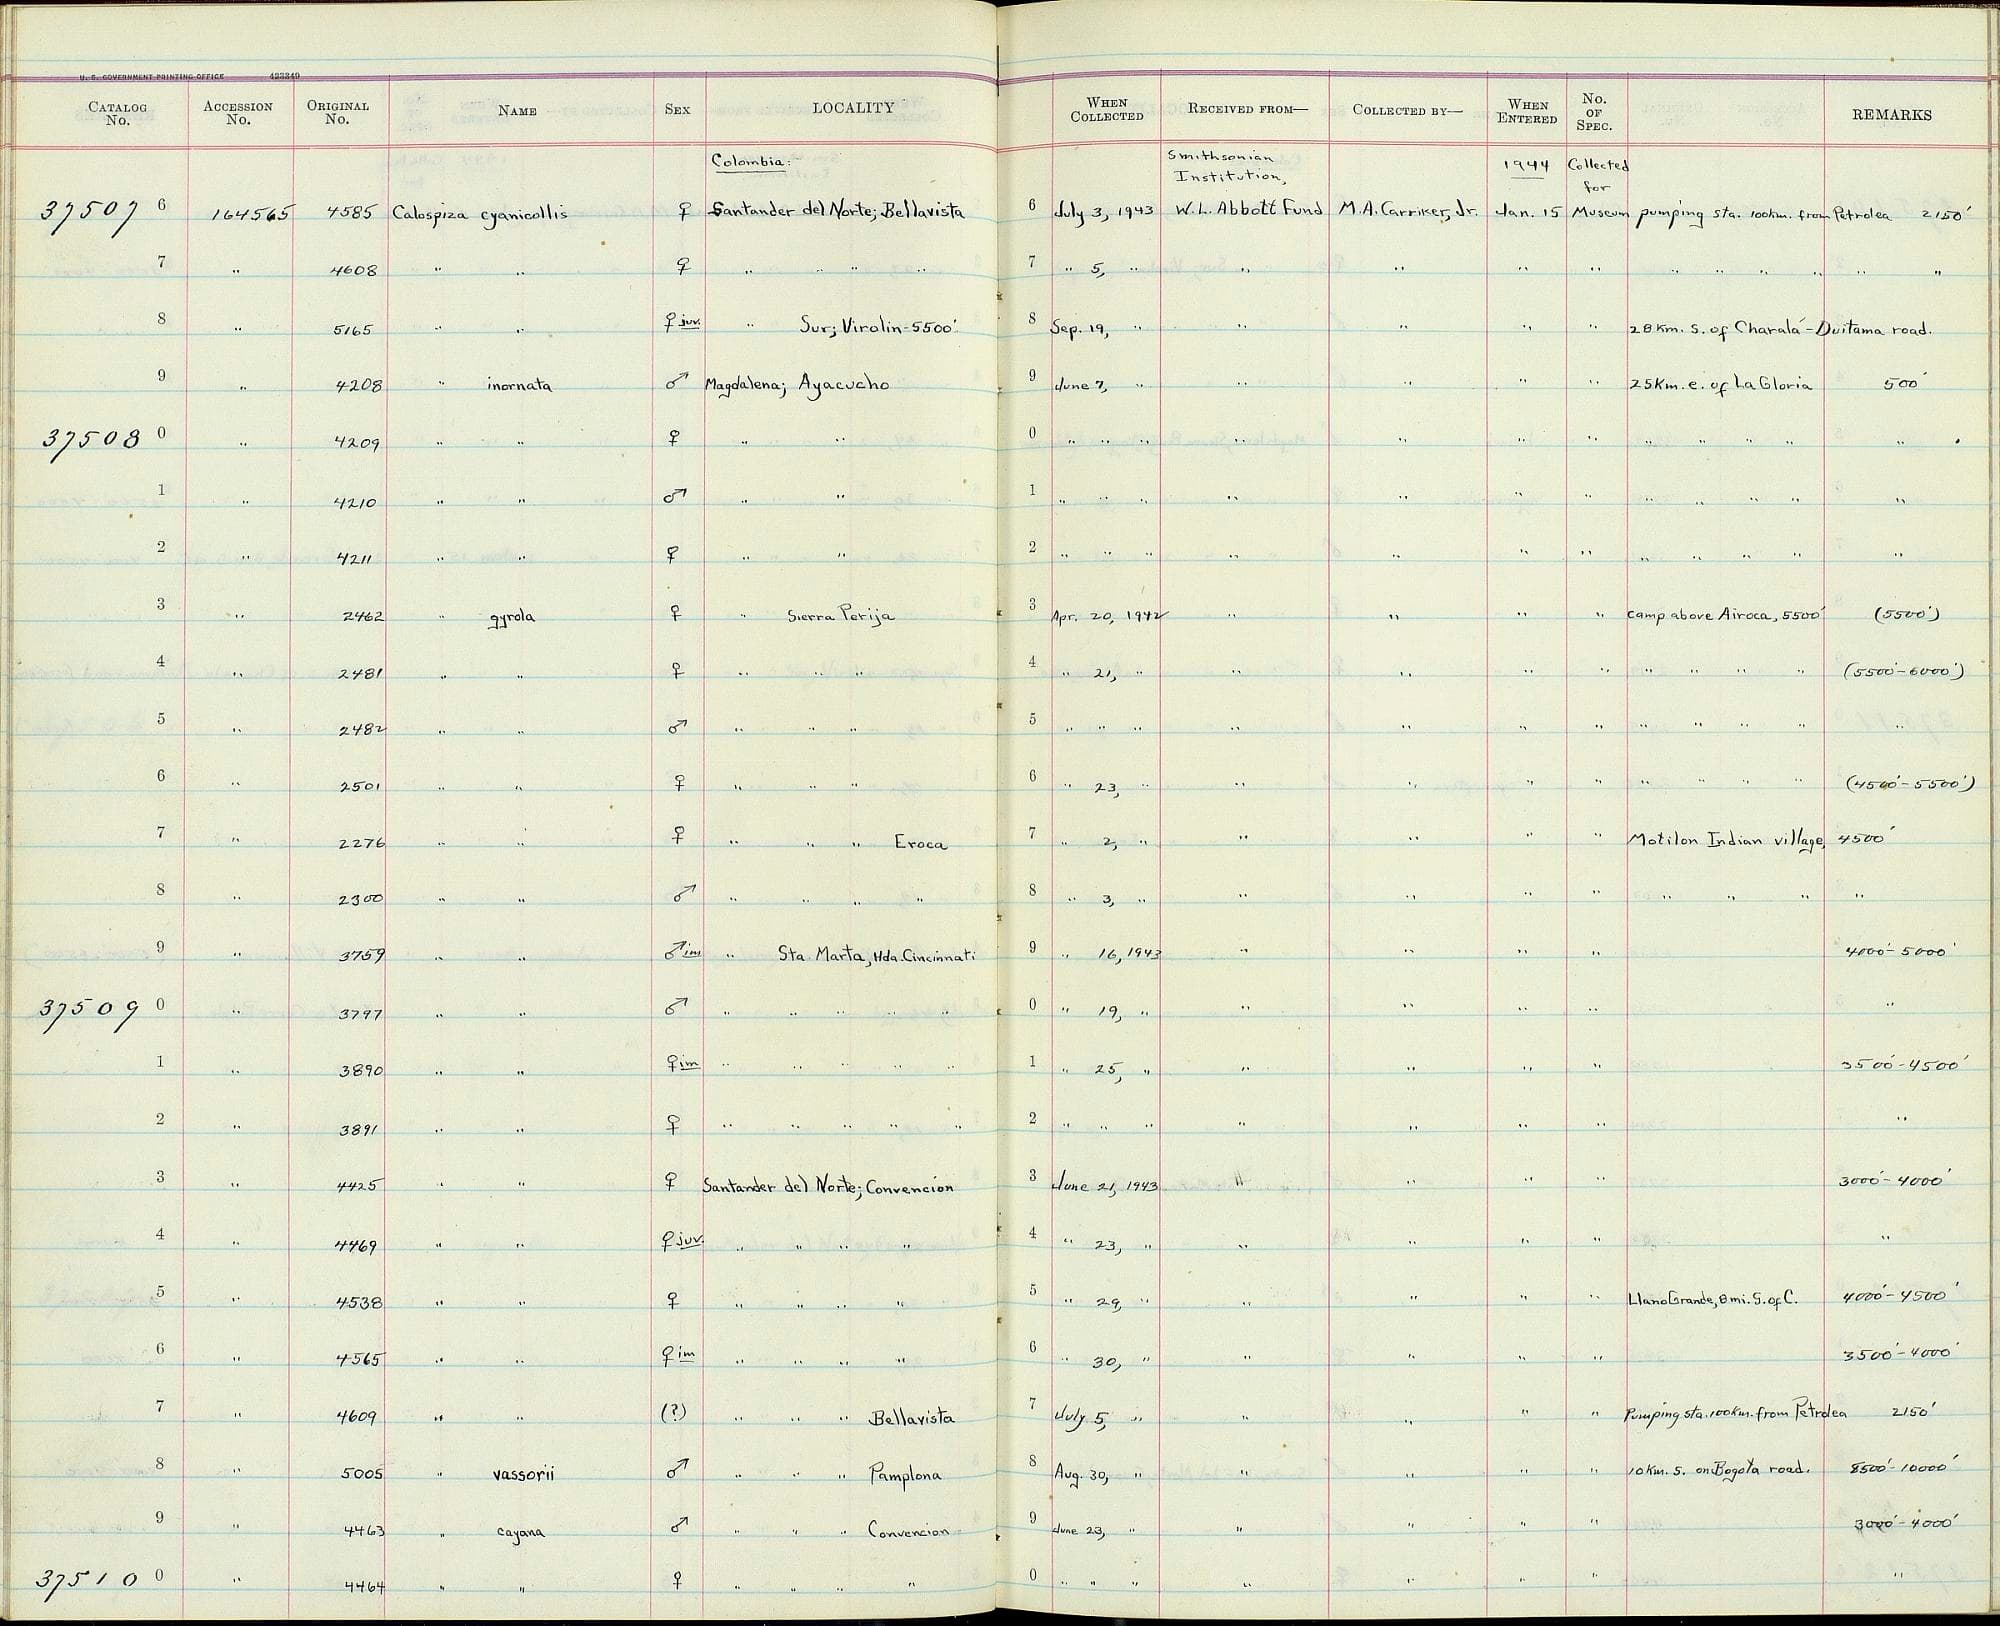 U. S. GOVERNMENT PRINTING OFFICE 423349
CATALOG No. ACCESSION No. ORIGINAL No. NAME SEX LOCALITY WHEN COLLECTED RECEIVED FROM— COLLECTED BY— WHEN ENTERED No. OF SPEC. REMARKS
Colombia: Smithsonian Institution, 1944 Collected for
37507 6 164565 4585 Calospiza cyanicollis ♀ Santander del Norte; Bellavista 6 July 3, 1943 W. L. Abbott Fund M. A. Carriker, Jr. Jan. 15 Museum pumping sta. 100km. from Petrolea 2150'
7 " 4608 " " ♀ " " " " 7 " 5, " " " " " " " " " " "
8 " 5165 " " ♀ juv. " Sur; Virolin-5500'. 8 Sep. 19, " " " " " 28 Km. S. of Charalá-Duitama road.
9 " 4208 " inornata ♂ Magdalena; Ayacucho 9 June 7, " " " " " 25Km. e. of La Gloria 500'
37508 0 " 4209 " " ♀ " " 0 " " " " " " " " " " " "
1 " 4210 " " ♂ " " 1 " " " " " " " " " " " "
2 " 4211 " " ♀ " " 2 " " " " " " " " " " " "
3 " 2462 " gyrola ♀ " Sierra Perija 3 Apr. 20, 1942 " " " " camp above Airoca, 5500' (5500')
4 " 2481 " " ♀ " " " 4 " 21, " " " " " " " " " (5500'-6000')
5 " 2482 " " ♂ " " " 5 " " " " " " " " " " " "
6 " 2501 " " ♀ " " " 6 " 23, " " " " " " " " " (4500'-5500')
7 " 2276 " " ♀ " " " Eroca 7 " 2, " " " " " Motilon Indian village, 4500'
8 " 2300 " " ♂ " " " " 8 " 3, " " " " " " " " "
9 " 3759 " " ♂ im " Sta. Marta, Hda. Cincinnati 9 " 16, 1943 " " " " 4000'-5000'
37509 0 " 3797 " " ♂ " " " " " 0 " 19, " " " " " "
1 " 3890 " " ♀ im " " " " " 1 " 25, " " " " " 3500'-4500'
2 " 3891 " " ♀ " " " " " 2 " " " " " " " "
3 " 4425 " " ♀ Santander del Norte; Convencion 3 June 21, 1943 " " " " 3000'-4000'
4 " 4469 " " ♀ juv. " " " " 4 " 23, " " " " " "
5 " 4538 " " ♀ " " " " 5 " 29, " " " " " Llano Grande, 8 mi. S. of C. 4000'-4500'
6 " 4565 " " ♀ im " " " " 6 " 30, " " " " " 3500'-4000'
7 " 4609 " " (?) " " " Bellavista 7 July 5, " " " " " Pumping sta. 100Km. from Petrolea 2150'
8 " 5005 " vassorii ♂ " " " Pamplona 8 Aug. 30, " " " " " 10 Km. S. on Bogota road. 8500'-10000'
9 " 4463 " cayana ♂ " " " Convencion 9 June 23, " " " " " 3000'-4000'
37510 0 " 4464 " " ♀ " " " " 0 " " " " " " " "